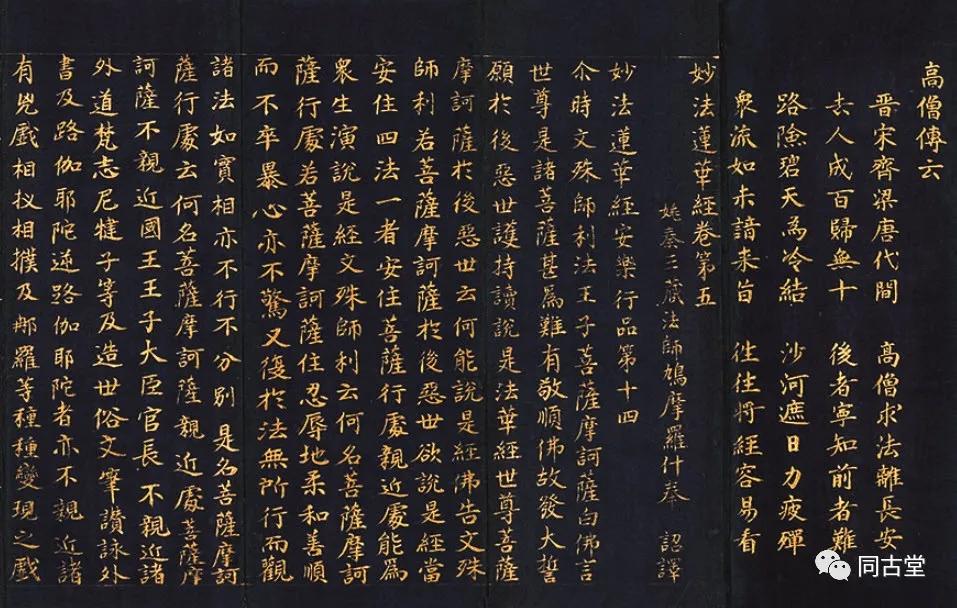 高僧傳云
晉宋齊梁唐代間　高僧求法離長安
去人成百歸無十　後者寧知前者難
路險碧天為冷結　沙河遮日力疲殫
衆流如未諳来旨　往往將經容易看
妙法蓮華經卷第五
姚秦三藏法師鳩摩羅什奉　詔譯
妙法蓮華經安樂行品第十四
尒時文殊師利法王子菩薩摩訶薩白佛言
世尊是諸菩薩甚為難有敬順佛故發大誓
願於後惡世護持讀說是法華經世尊菩薩
摩訶薩於後惡世云何能說是經佛告文殊
師利若菩薩摩訶薩於後惡世欲說是經當
安住四法一者安住菩薩行處親近處能為
衆生演說是經文殊師利云何名菩薩摩訶
薩行處若菩薩摩訶薩住忍辱地柔和善順
而不卒暴心亦不驚又復於法無所行而觀
諸法如實相亦不行不分別是名菩薩摩訶
薩行處云何名菩薩摩訶薩親近處菩薩摩
訶薩不親近國王王子大臣官長不親近諸
外道梵志尼犍子等及造世俗文筆讚詠外
書及路伽耶陀逆路伽耶陀者亦不親近諸
有兇戲相扠相撲及那羅等種種變現之戲
同古堂